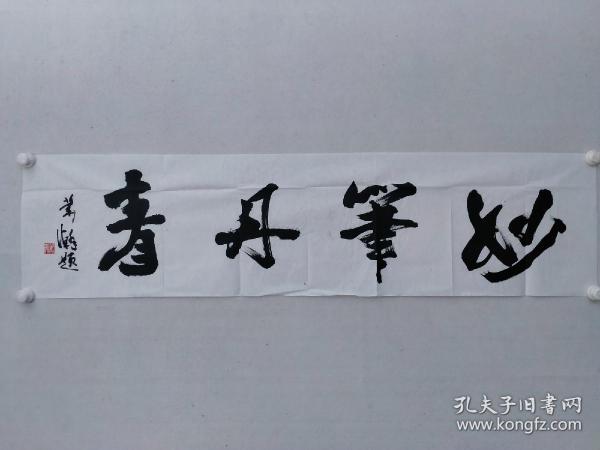 妙筆丹青
題
孔夫子旧书网
www.kongfz.com